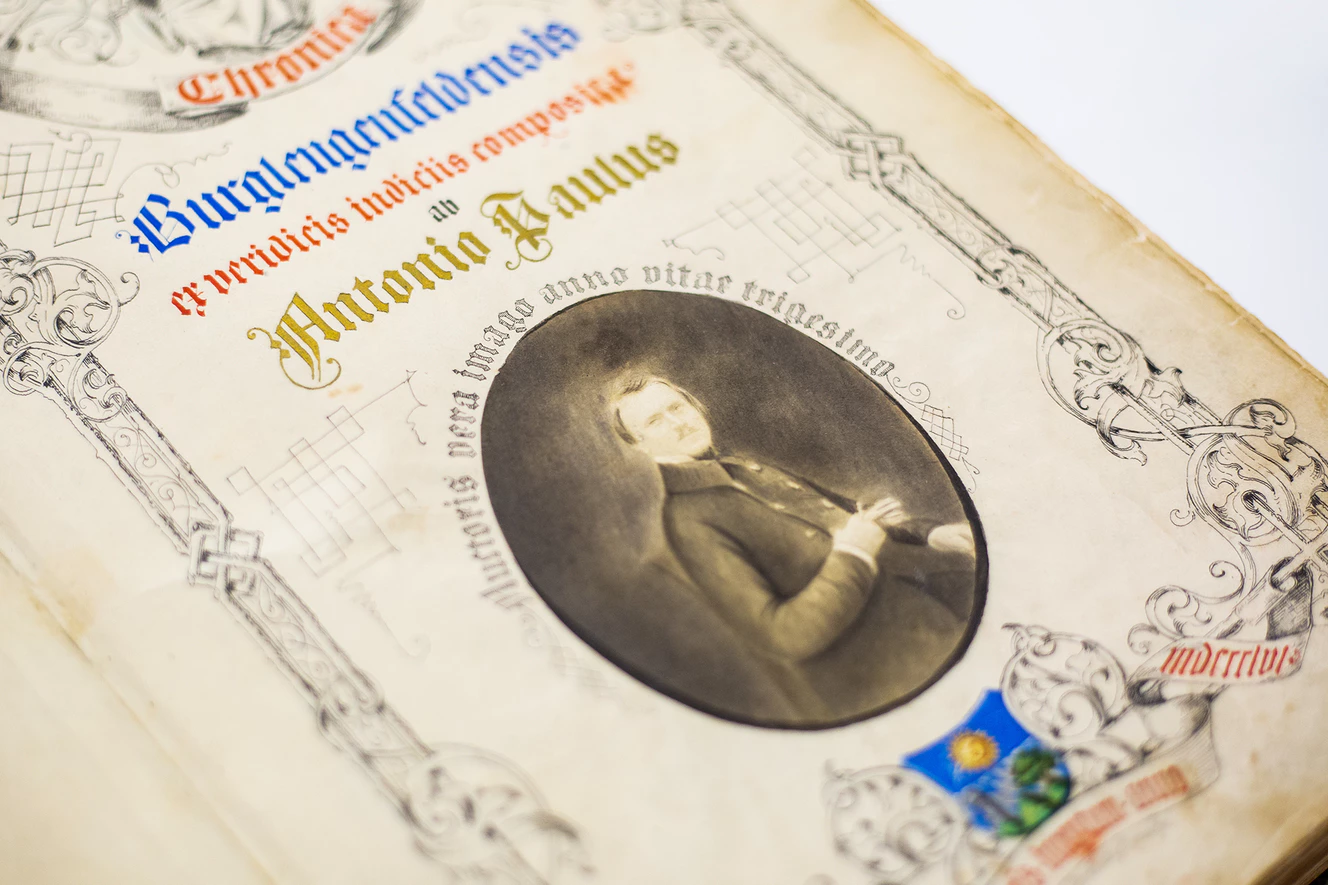 Chronica
Burglengenfeldensis
ex veridicis indiciis composita
ab
Antonio Paulus
Auctoris vera imago anno vitae trigesimo
mdccclvi